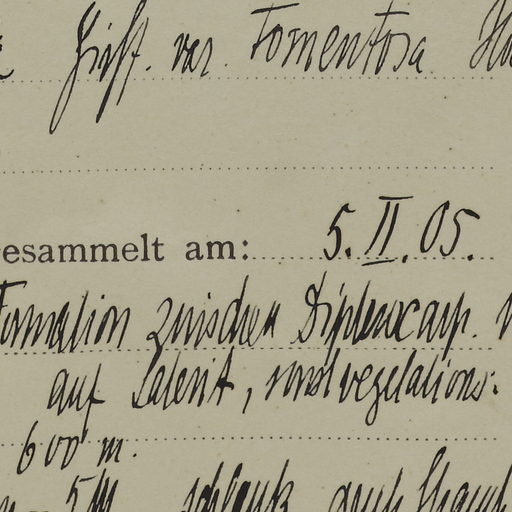 Griff. var. Tomentosa
gesammelt am: 5.II.05.
Formation zwischen Diplerocarp.
auf Laterit, sonst vegetations:
600 m.
5 M schlank auch